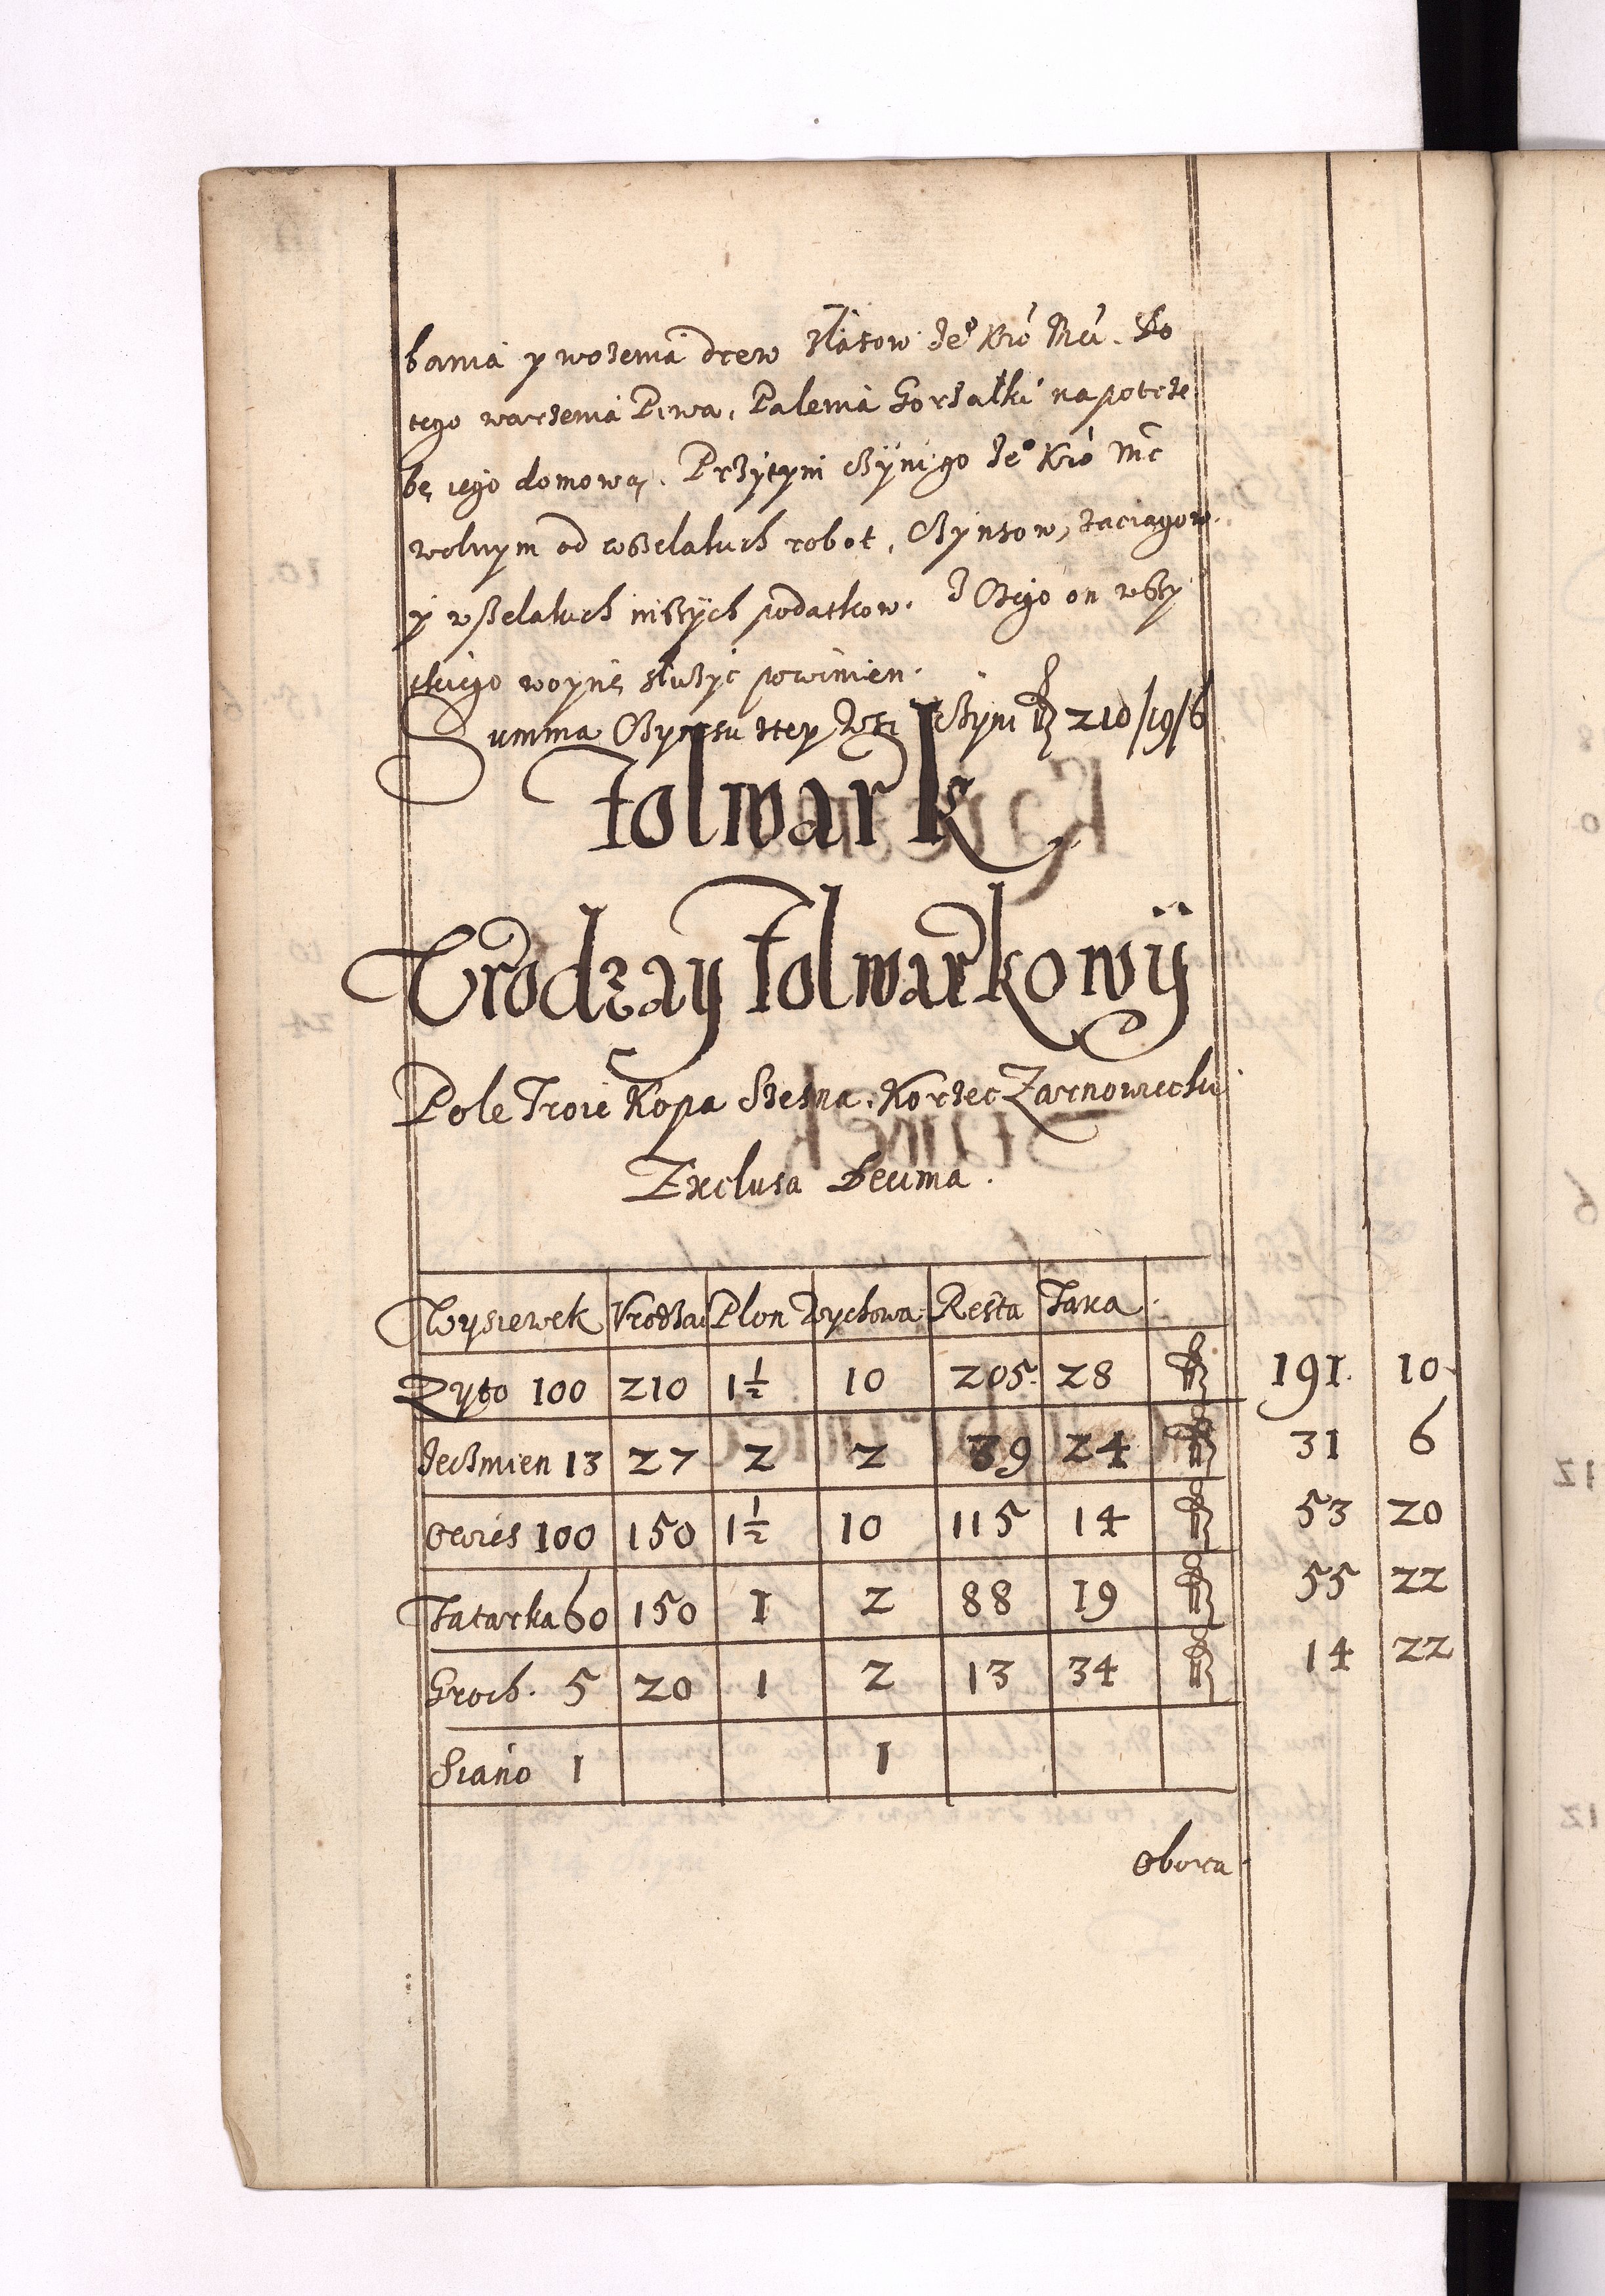 bania y wozenia drew zlasow Je° Kró Mći. Do
tego warzenia Piwa, Palenia Gorzałki na potrze
bę iego domową. Przytym czyni go Je° Kró Mć
wolnym od wszelakich robot, Czynszow, zaciagow.
y wszelakich inszych podatkow. Z Czego on wszy
stkiego woynę służyć powinien.
Summa Czynszu stey Wsi Czyni 210/19/6
Folwark
Vrodzay Folwarkowÿ
Pole Troie Kopa Szesna. Korzec Zarnowiecki
Exclusa Decima.
Wysiewek Vrodzai Plon Wychowa: Resta Taxa.
Zyto 100 210 1½ 10 205. 28 191. 10.
Jeczmien 13 27 2 2 39 24 31 6
Owies 100 150 1½ 10 115 14 53 20
Tatarka 60 150 1 2 88 19 55 22
Groch. 5 20 1 2 13 34 14 22
Siano 1 1
Obora.